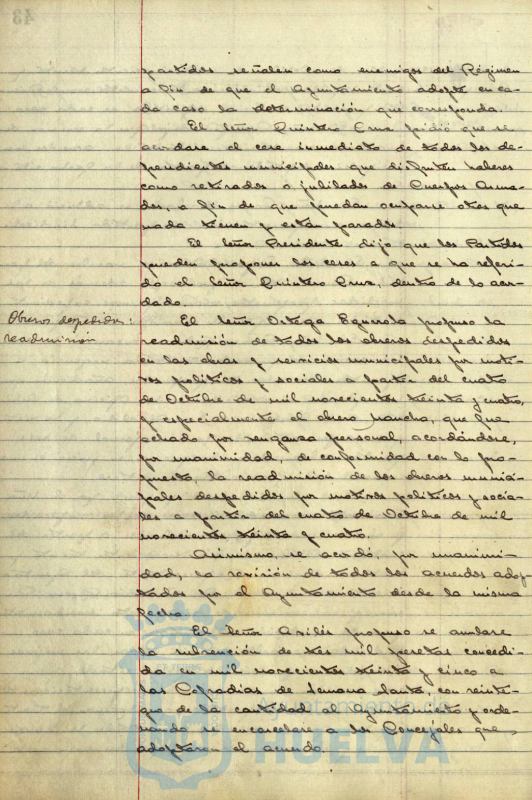 partidos señalen como enemigos del Régimen
a fin de que el Ayuntamiento adopte en ca-
da caso la determinación que corresponda.
El Señor Quintero Cruz pidió que se
acordase el cese inmediato de todos los de-
pendientes municipales que disfruten haberes
como retirados o jubilados de Cuerpos Arma-
dos, a fin de que puedan ocuparse otros que
nada tienen y están parados.
El Señor Presidente dijo que los Partidos
pueden proponer los ceses a que se ha referi-
do el Señor Quintero Cruz, dentro de lo acor-
dado.
Obreros despedidos:
readmisión
El Señor Ortega Eguirola propuso la
readmisión de todos los obreros despedidos
en las obras y servicios municipales por moti-
vos políticos y sociales a partir del cuatro
de Octubre de mil novecientos treinta y cuatro,
y especialmente el obrero Mancha, que fue
echado por venganza personal, acordándose,
por unanimidad, de conformidad con lo pro-
puesto, la readmisión de los obreros munici-
pales despedidos por motivos políticos y socia-
les a partir del cuatro de Octubre de mil
novecientos treinta y cuatro.
Asimismo, se acordó, por unanimi-
dad, la revisión de todos los acuerdos adop-
tados por el Ayuntamiento desde la misma
fecha.
El Señor Avilés propuso se anulase
la subvención de tres mil pesetas concedi-
da en mil novecientos treinta y cinco a
las Cofradías de Semana Santa, con reinte-
gro de la cantidad al Ayuntamiento y orde-
nando se encarcelase a los Concejales que
adoptaron el acuerdo.
HUELVA